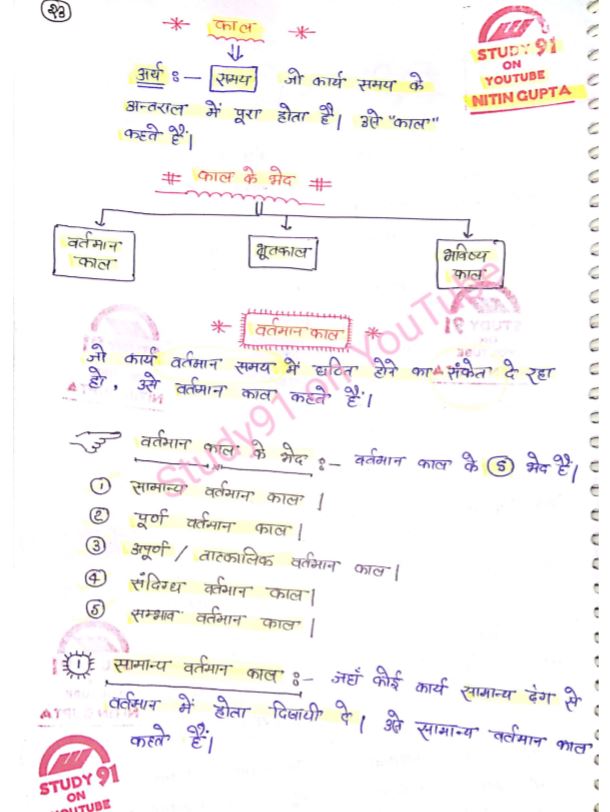 २३
काल
STUDY 91
ON
YOUTUBE
NITIN GUPTA
अर्थ :- समय जो कार्य समय के
अन्तराल में पूरा होता है। उसे "काल"
कहते हैं।
# काल के भेद #
वर्तमान काल
भूतकाल
भविष्य काल
* वर्तमान काल *
जो कार्य वर्तमान समय में घटित होने का संकेत दे रहा
हो, उसे वर्तमान काल कहते हैं।
Study91 on YouTube
वर्तमान काल के भेद :- वर्तमान काल के 5 भेद हैं।
1 सामान्य वर्तमान काल।
2 पूर्ण वर्तमान काल।
3 अपूर्ण / तात्कालिक वर्तमान काल।
4 संदिग्ध वर्तमान काल।
5 सम्भाव वर्तमान काल।
1 सामान्य वर्तमान काल :- जहाँ कोई कार्य सामान्य ढंग से
वर्तमान में होता दिखायी दे। उसे सामान्य वर्तमान काल
कहते हैं।
STUDY 91
ON
YOUTUBE